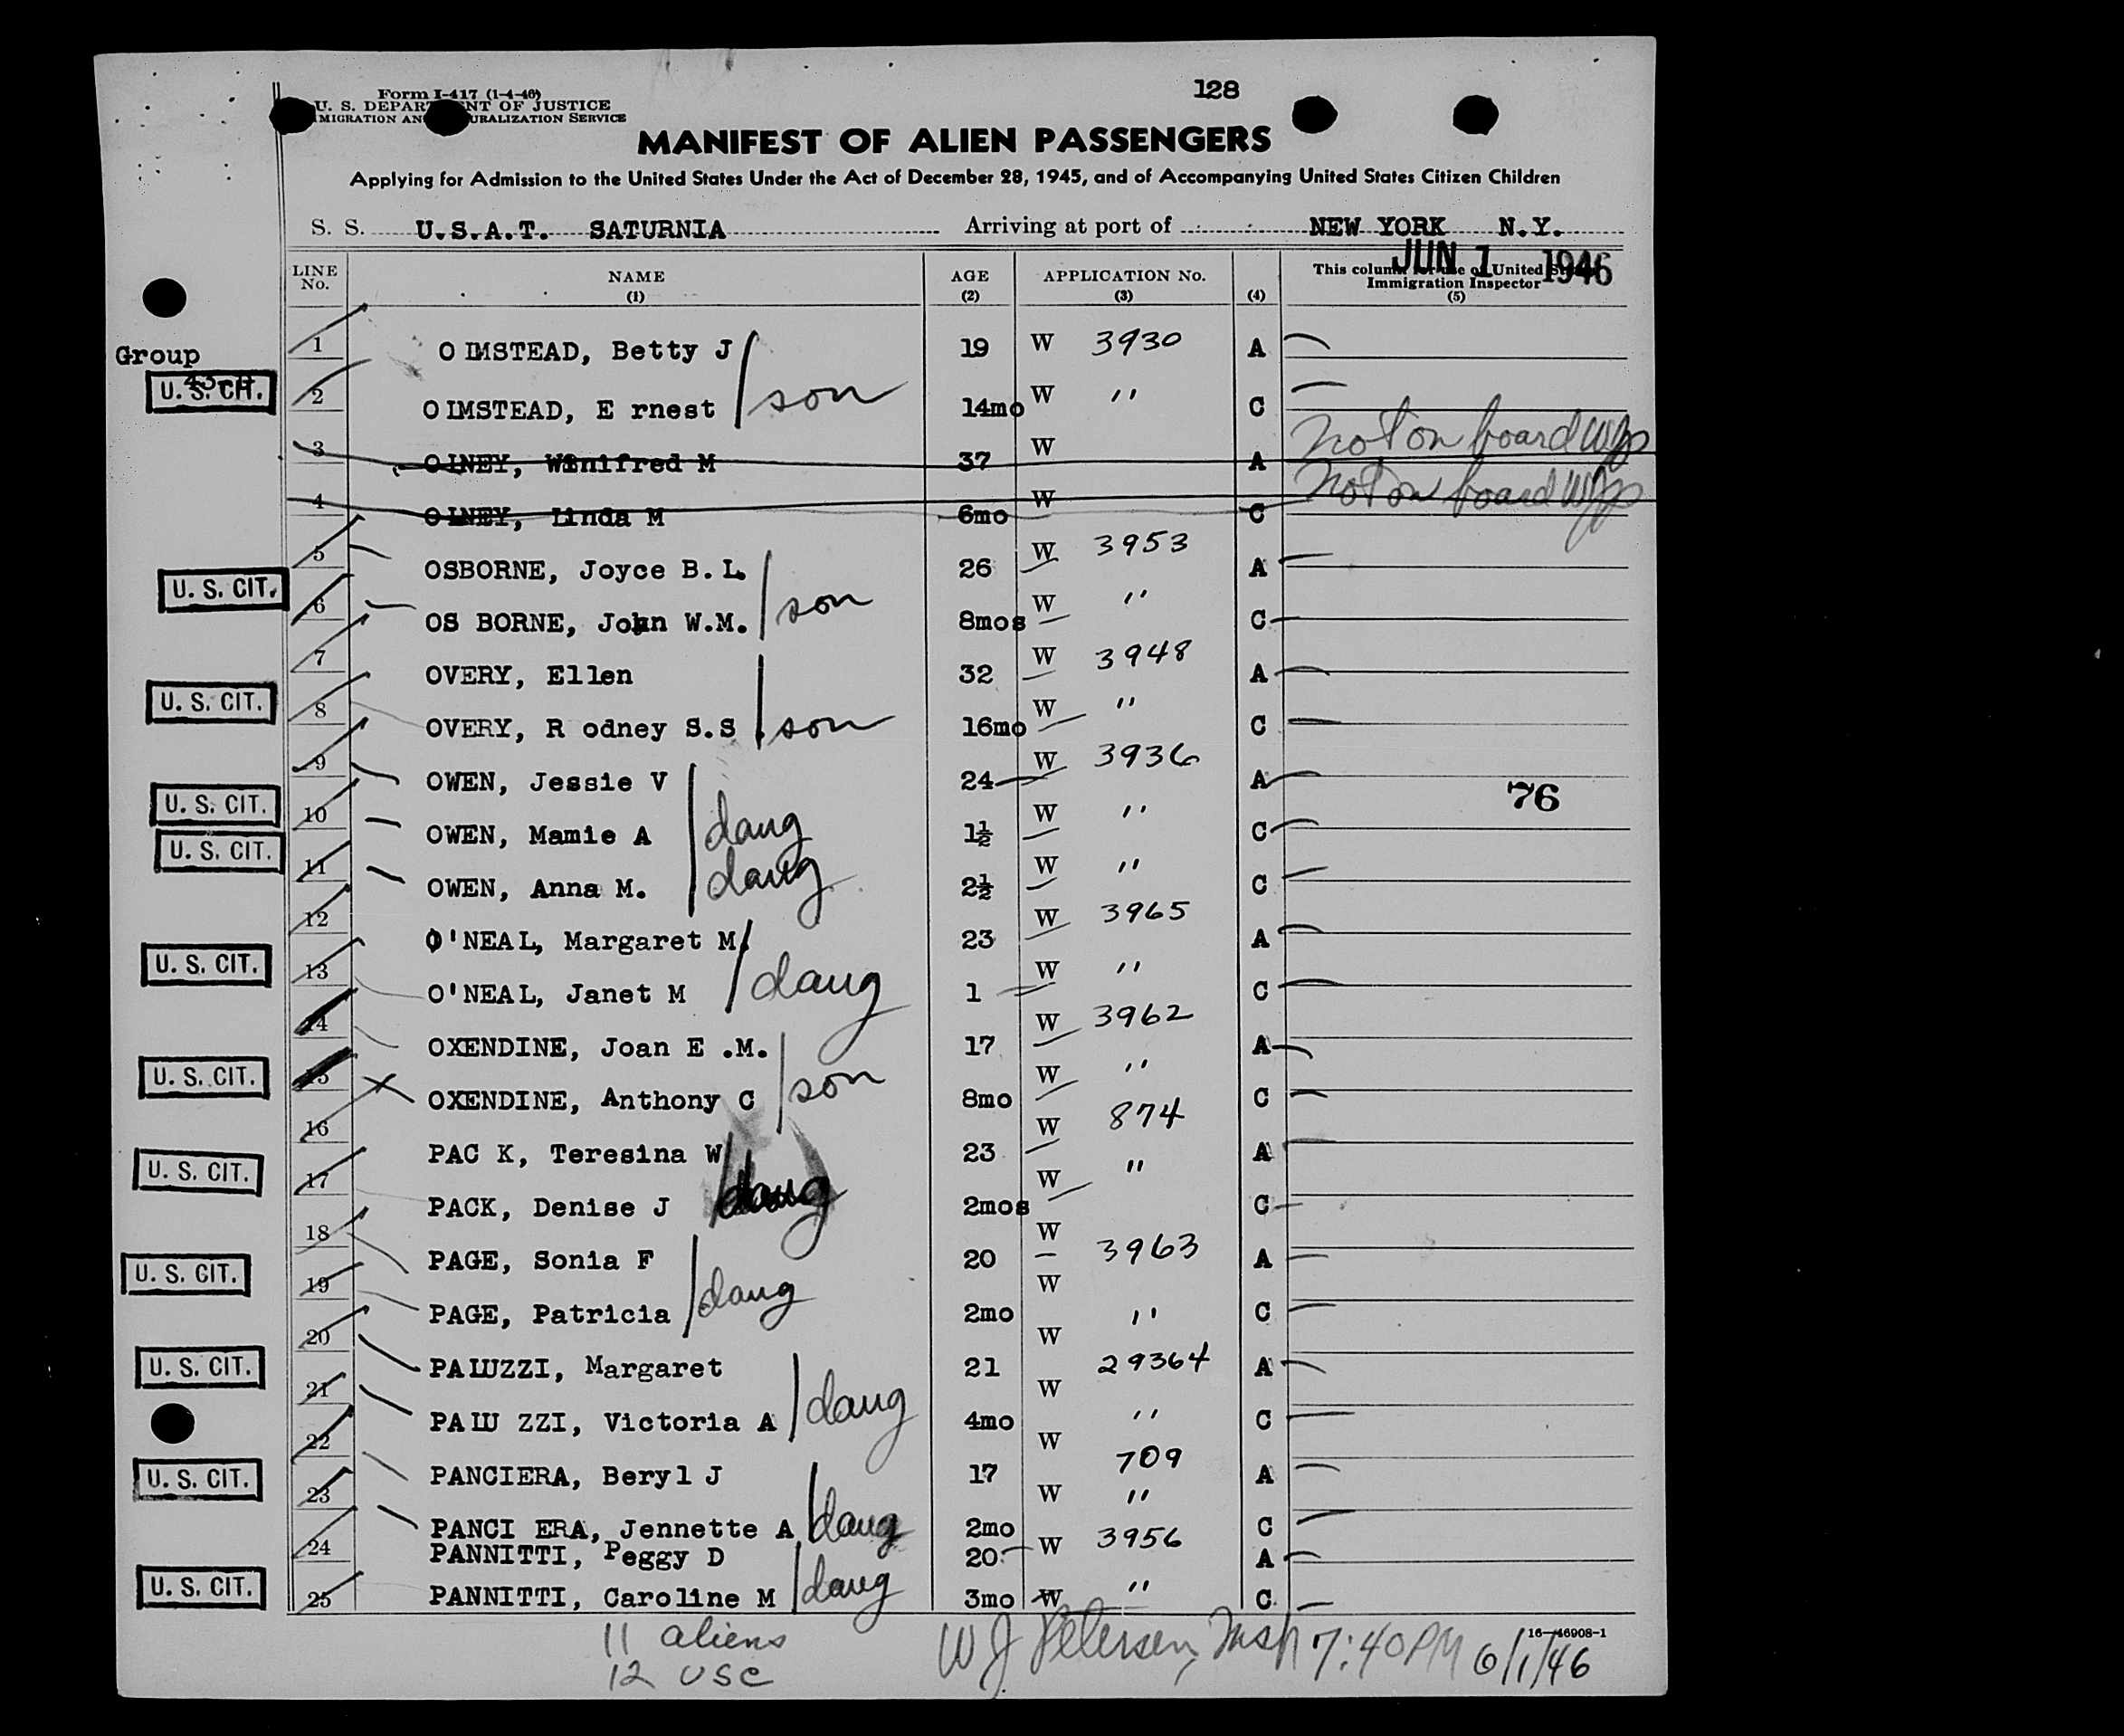 128
Form I-417 (1-4-46)
U. S. DEPARTMENT OF JUSTICE
IMMIGRATION AND NATURALIZATION SERVICE
MANIFEST OF ALIEN PASSENGERS
Applying for Admission to the United States Under the Act of December 28, 1945, and of Accompanying United States Citizen Children
S. S. U.S.A.T. SATURNIA Arriving at port of NEW YORK N.Y.
JUN 1 1946
LINE No. NAME (1) AGE (2) APPLICATION No. (3) (4) This column for use of United States Immigration Inspector (5)
Group
1 OLMSTEAD, Betty J 19 W 3930 A
U. S. CIT. 2 OLMSTEAD, E rnest son 14mo W " C
3 OLNEY, Winifred M 37 W A Not on board WJP
4 OLNEY, Linda M 6mo W C Not on board WJP
5 OSBORNE, Joyce B. L. 26 W 3953 A
U. S. CIT. 6 OS BORNE, John W.M. son 8mos W " C
7 OVERY, Ellen 32 W 3948 A
U. S. CIT. 8 OVERY, R odney S.S son 16mo W " C
9 OWEN, Jessie V 24 W 3936 A
76
U. S. CIT. 10 OWEN, Mamie A daug 1½ W " C
U. S. CIT. 11 OWEN, Anna M. daug 2½ W " C
12 O'NEAL, Margaret M 23 W 3965 A
U. S. CIT. 13 O'NEAL, Janet M daug 1 W " C
14 OXENDINE, Joan E .M. 17 W 3962 A
U. S. CIT. 15 OXENDINE, Anthony C son 8mo W " C
16 PAC K, Teresina W 23 W 874 A
U. S. CIT. 17 PACK, Denise J daug 2mos W " C
18 PAGE, Sonia F 20 W 3963 A
U. S. CIT. 19 PAGE, Patricia daug 2mo W " C
20 PALUZZI, Margaret 21 W 29364 A
U. S. CIT. 21 PALU ZZI, Victoria A daug 4mo W " C
22 PANCIERA, Beryl J 17 W 709 A
U. S. CIT. 23 PANCI ERA, Jennette A daug 2mo W " C
24 PANNITTI, Peggy D 20 W 3956 A
U. S. CIT. 25 PANNITTI, Caroline M daug 3mo W " C
16-46908-1
11 aliens
12 USC
W J Petersen, Insp 7:40 PM 6/1/46